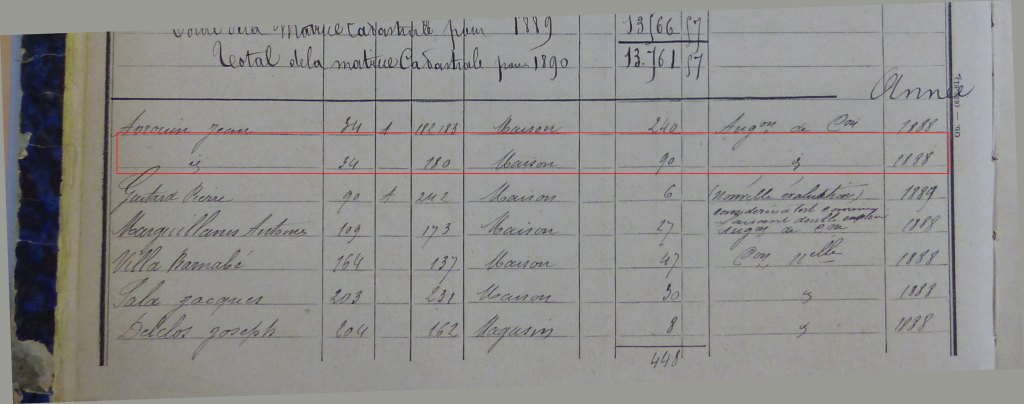 Total de la Matrice Cadastrale pour 1889 13566 57
Total de la matrice Cadastrale pour 1890 13.761 57
Année
Jean 34 A 182 183 Maison 240 Augon de Con 1888
id 34 180 Maison 90 id 1888
Guitard Pierre 90 A 242 Maison 6 (Nouvelle évaluation) 1889
Marquillanes Antoine 109 173 Maison 27 Augon de Con 1888
Villa Barnabé 164 137 Maison 47 Con Nelle 1888
Sala Jacques 203 231 Maison 30 1888
Delclos Joseph 204 162 Magasin 8 1888
448